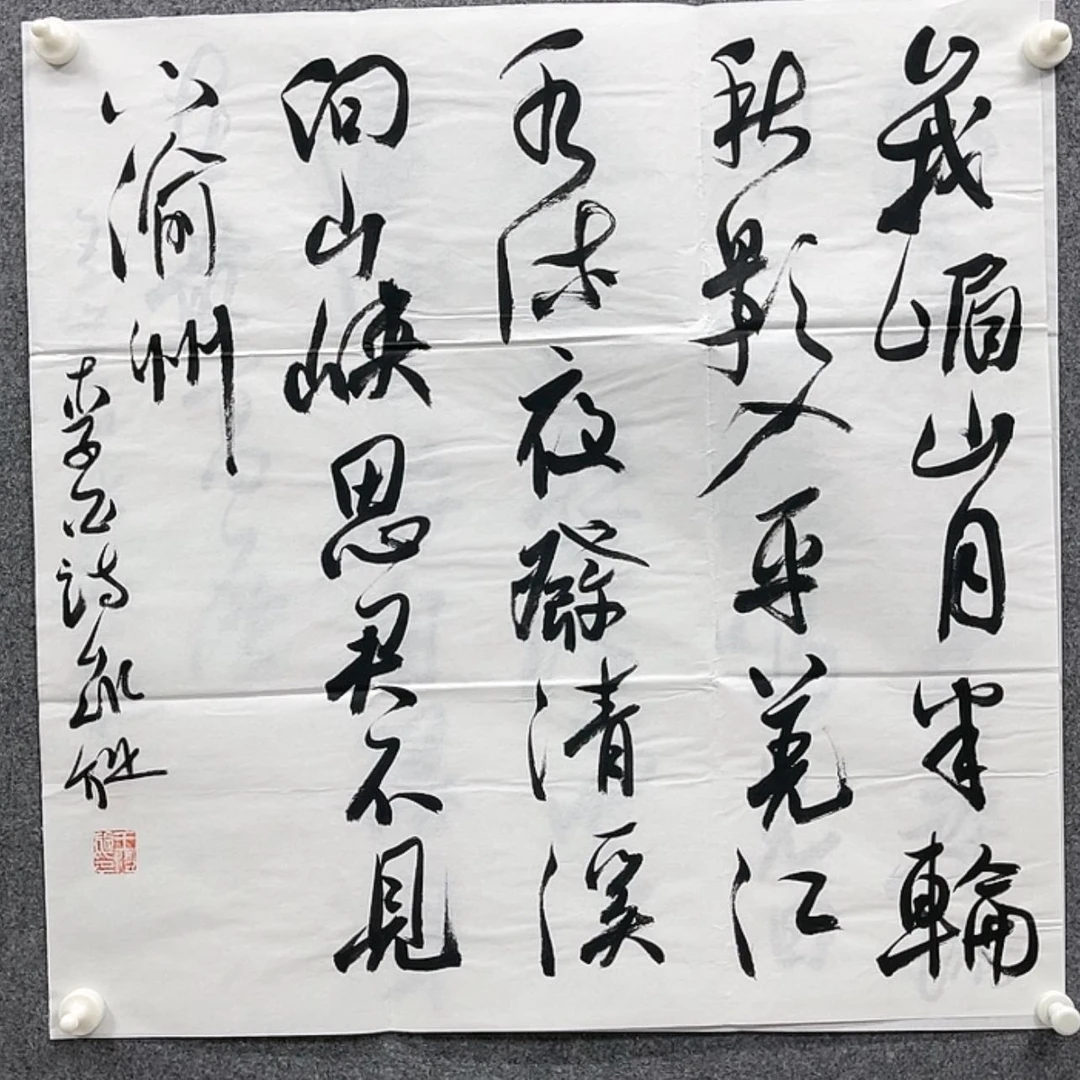 峨嵋山月半輪
秋影入平羌江
水流夜發清溪
向山峡思君不見
下渝州
李白詩